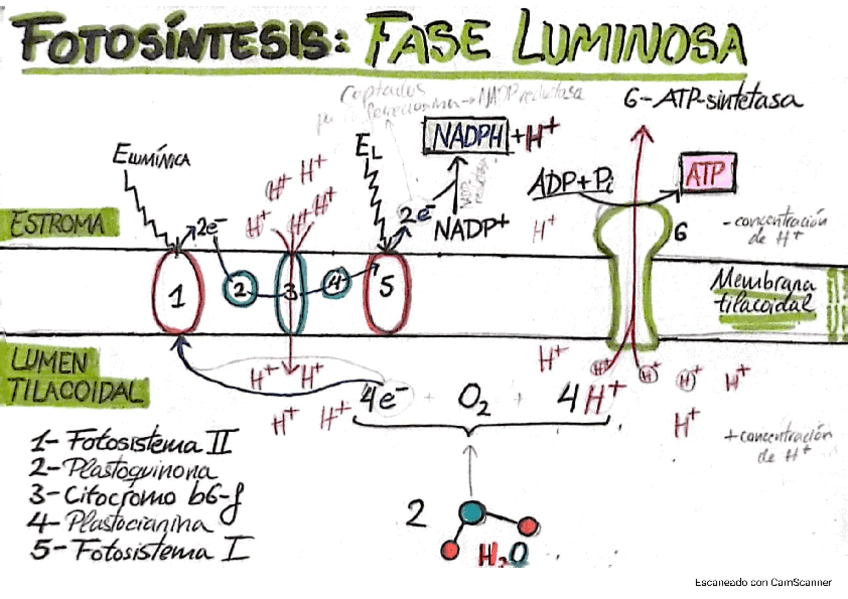 FOTOSÍNTESIS: FASE LUMINOSA
Captados
ferredoxina → NADP reductasa
6- ATP-sintetasa
NADPH + H+
E LUMÍNICA
EL
H+
H+
H+
H+
H+
ADP + Pi
ATP
NADP reductasa
ESTROMA
2e-
2e-
NADP+
H+
6
- concentración
de H+
1
2
3
4
5
Membrana
tilacoidal
LUMEN
TILACOIDAL
H+
H+
H+
H+
H+
H+
H+
H+
H+
4e- + O2 + 4H+
H+
+ concentración
de H+
1- Fotosistema II
2- Plastoquinona
3- Citocromo b6-f
4- Plastocianina
5- Fotosistema I
2
H2O
Escaneado con CamScanner